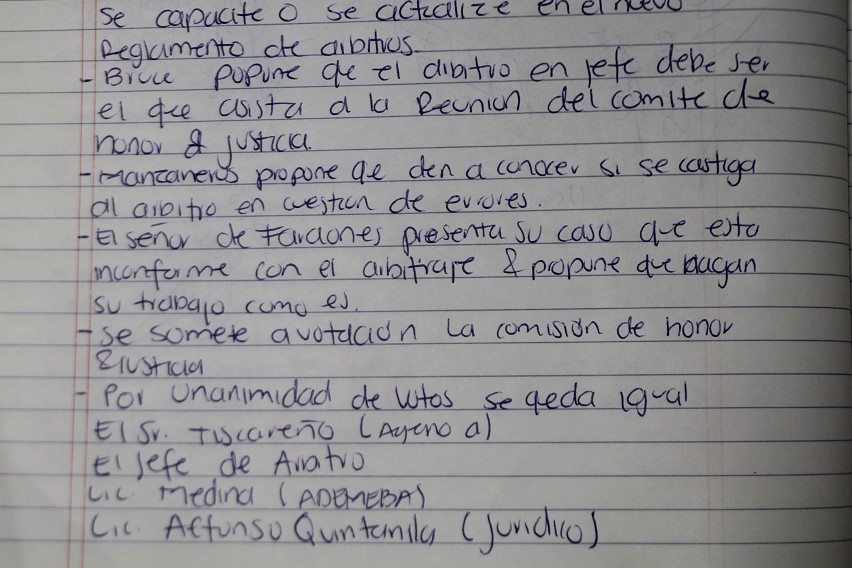 se capacite o se actualize en el nuevo
Reglamento de arbitros.
- Bruce popone qe el abitro en jefe debe ser
el qe asista a la Reunion del comite de
honor & justicia.
- Manzaneros propone qe den a conocer si se castiga
al arbitro en cuestion de errores.
- El señor de Faraones presenta su caso que esta
inconforme con el arbitraje & propone que hagan
su trabajo como es.
- Se somete a votación La comisión de honor
& Justicia
- Por Unanimidad de votos se qeda igual
El Sr. Tiscareño (Ageno a)
El Jefe de Arbitro
Lic. Medina (ADEMEBA)
Lic. Alfonso Quintanilla (juridico)